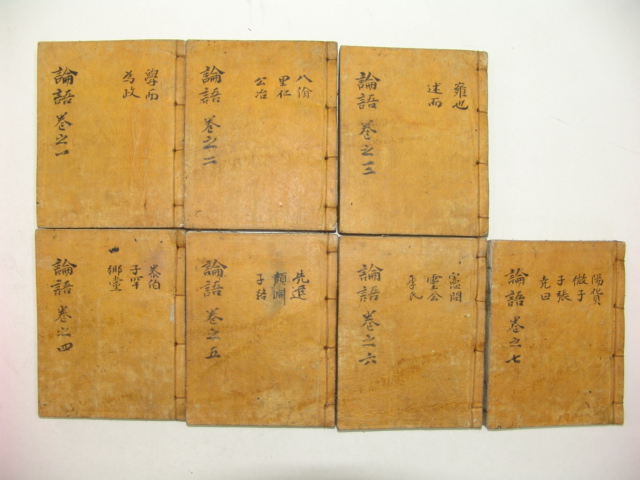 論語 卷之一
學而
爲政
論語 卷之二
八佾
里仁
公冶
論語 卷之三
雍也
述而
論語 卷之四
泰伯
子罕
鄕黨
論語 卷之五
先進
顔淵
子路
論語 卷之六
憲問
靈公
季氏
論語 卷之七
陽貨
微子
子張
堯曰